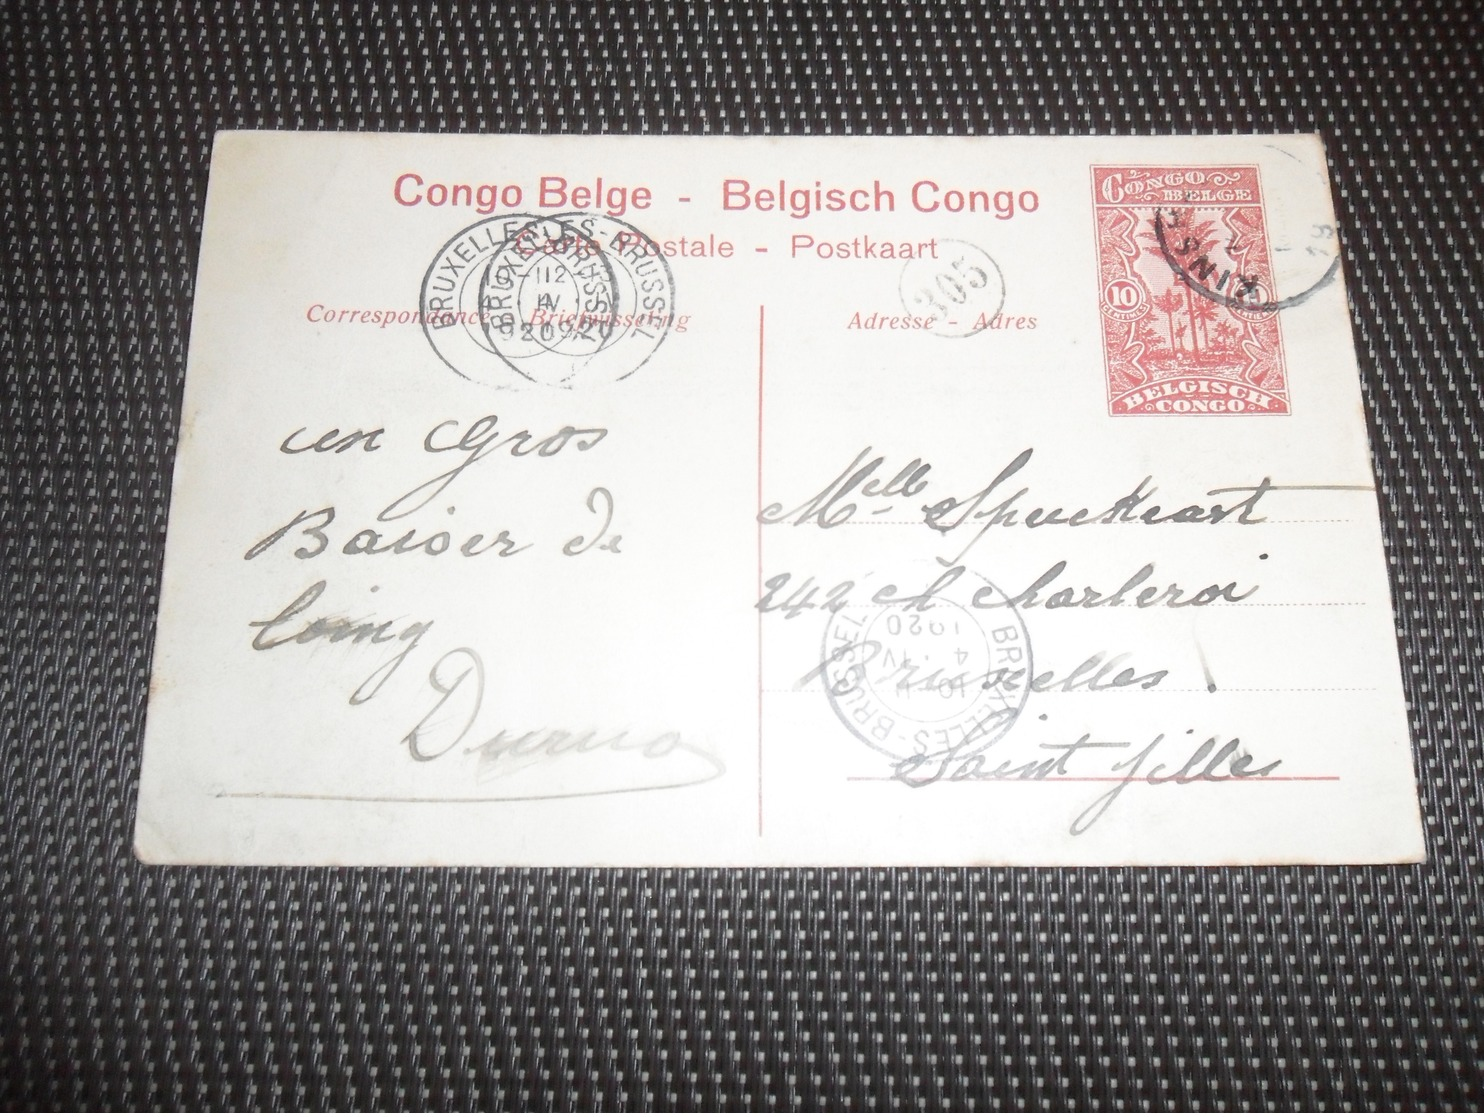 Congo Belge - Belgisch Congo
Carte Postale - Postkaart
Correspondance - Briefwisseling
Adresse - Adres
CONGO BELGE
10 CENTIMES
BELGISCH CONGO
KINS
305
BRUXELLES-BRUSSEL
IV
1920
BRUXELLES-BRUSSEL
IV
1920
un Gros
Baiser de
loing
Melle
242 ch charleroi
Bruxelles.
Saint Gilles
BRUXELLES-BRUSSEL
4 IV
1920